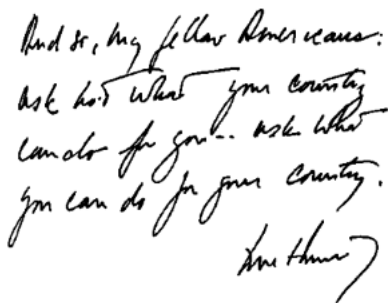 And so, my fellow Americans:
ask not what your country
can do for you-- ask what
you can do for your country.